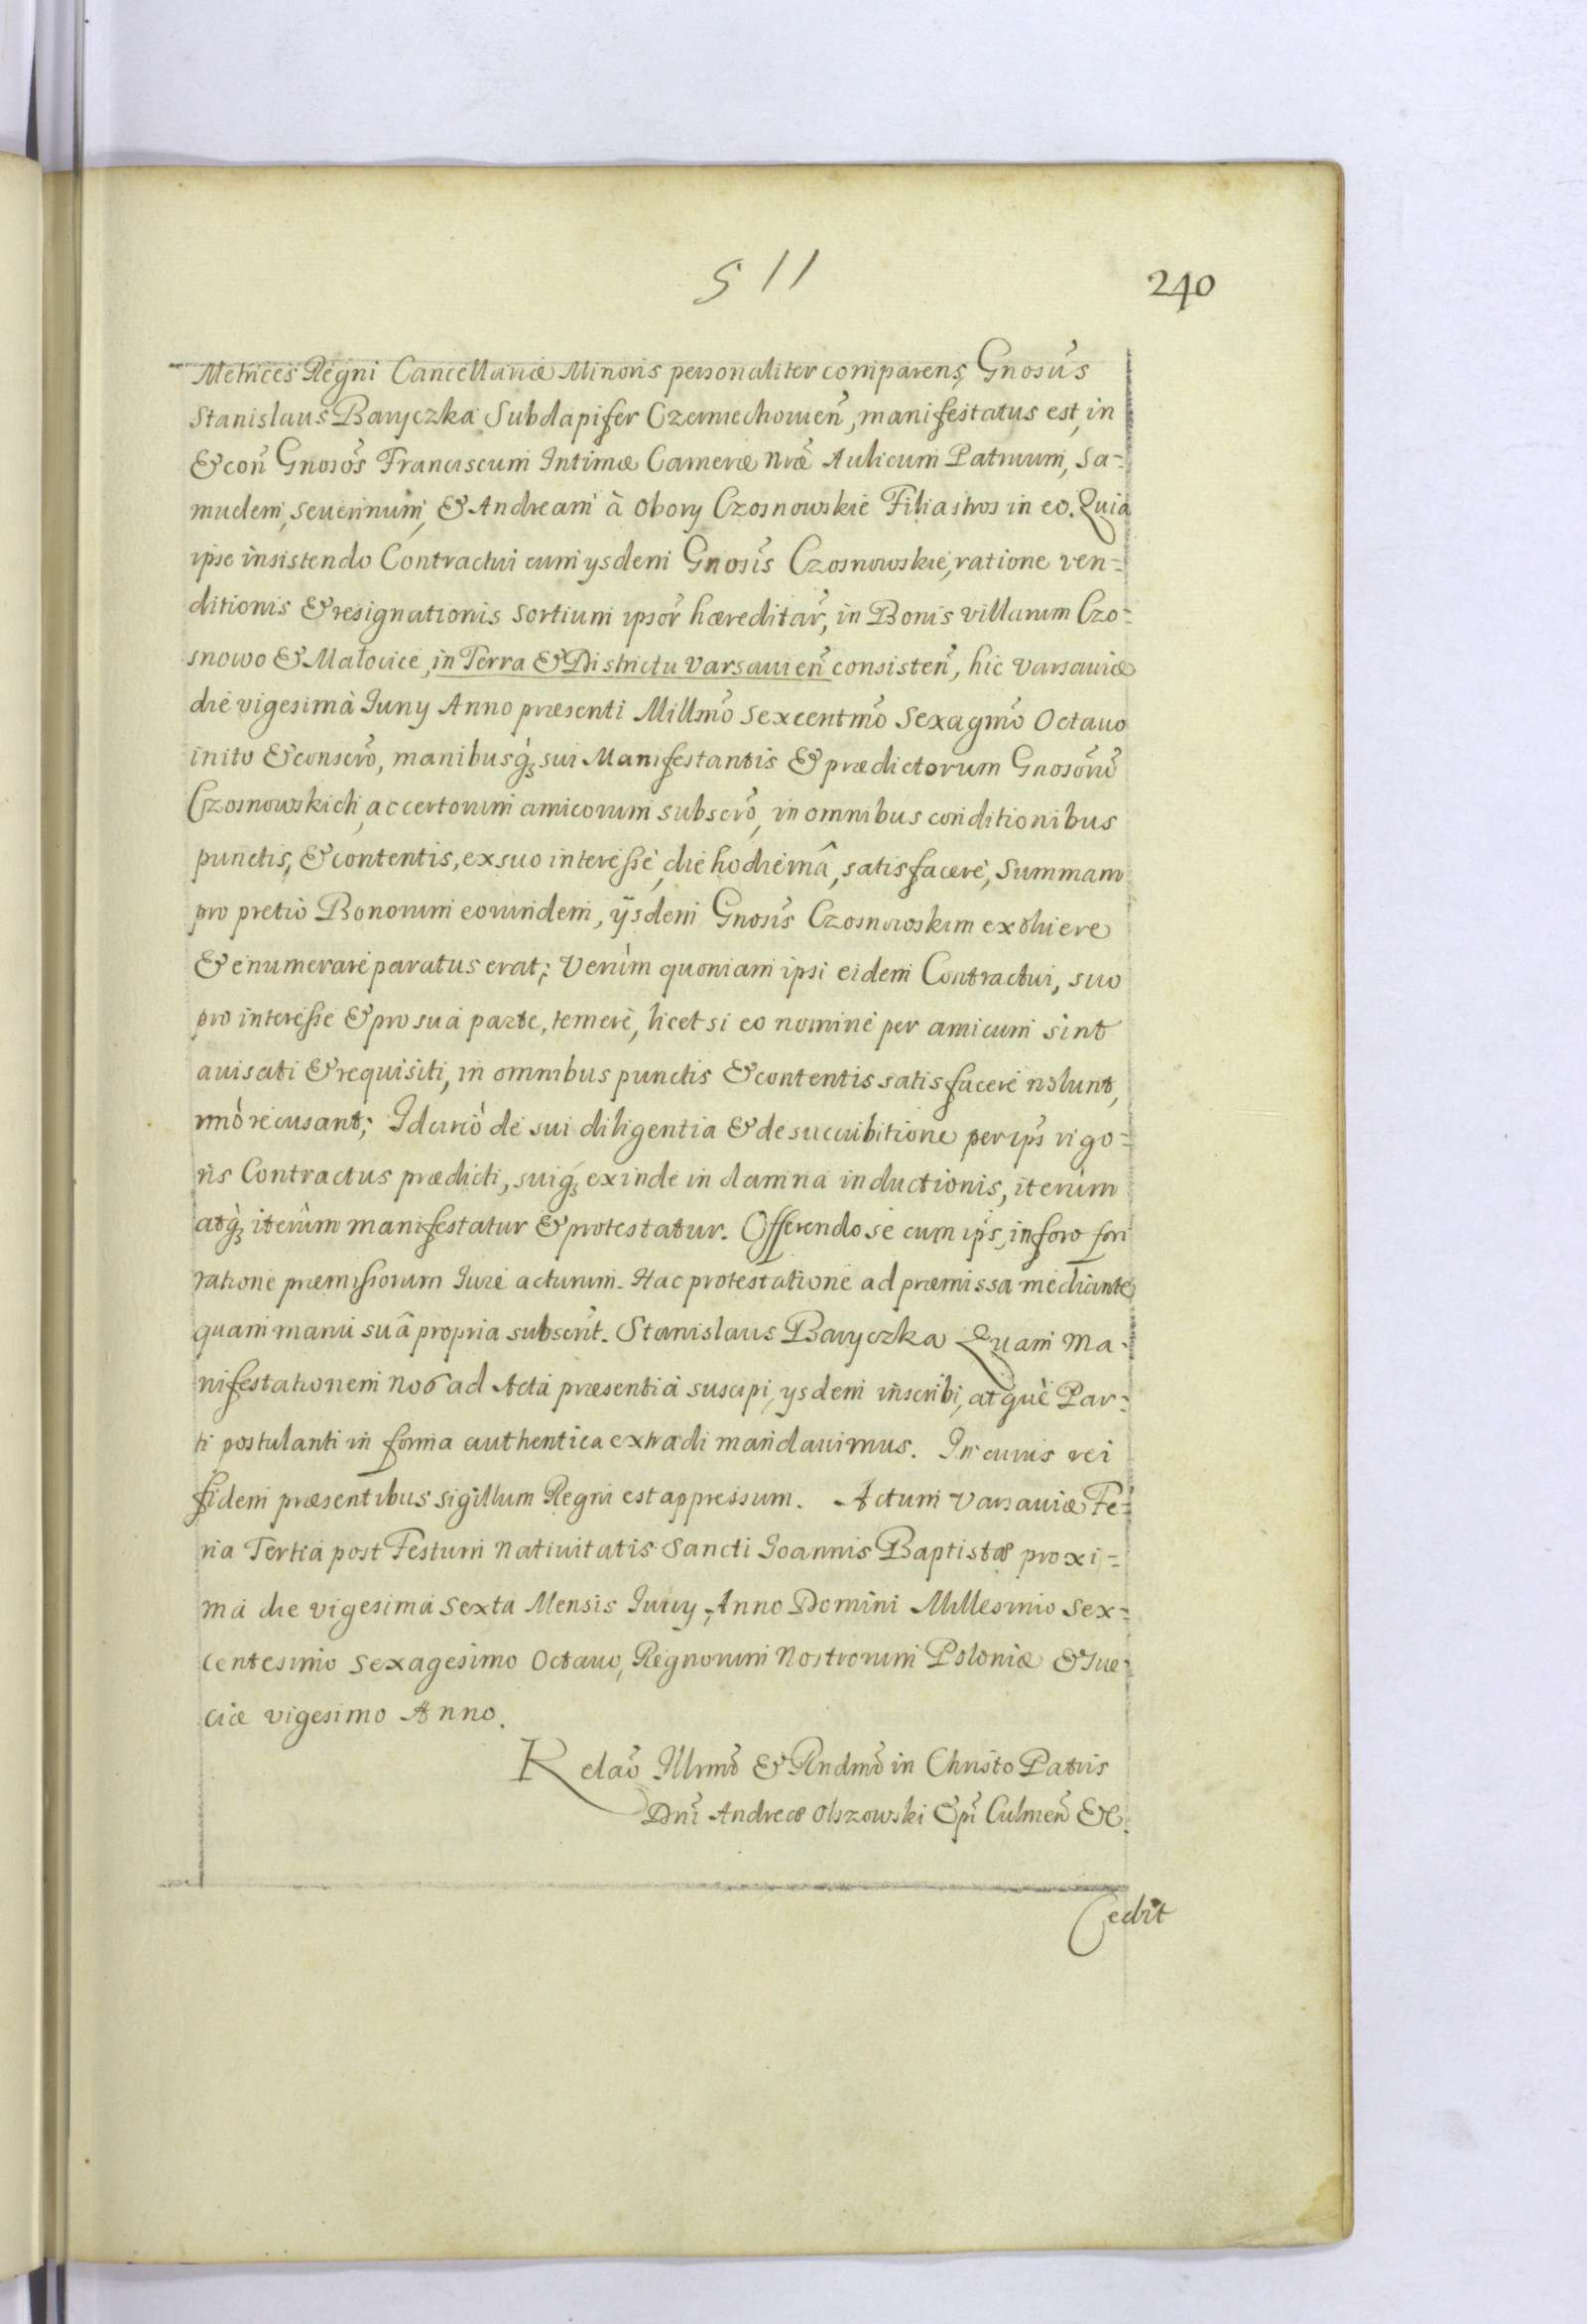 511
240
Metrices Regni Cancellariæ Minoris personaliter comparens, Gnosus
Stanislaus Baryczka Subdapifer Czerniechovien, manifestatus est, in
& con Gnosos Franciscum Intimæ Cameræ nræ Aulicum Patruum, Sa-
muelem, Severinum, & Andream à Obory Czosnowskie Filiastros in eo. Quia
ipse insistendo Contractui cum ysdem Gnosis Czosnowskie, ratione ven-
ditionis & resignationis Sortium ipsor hæreditar, in Bonis villarum Czo-
snowo & Małocice, in Terra & Districtu Varsavien consisten, hic Varsaviæ
die vigesima Juny Anno præsenti Millmo Sexcentmo Sexagmo Octavo
inito & conscro, manibusq sui Manifestantis & prædictorum Gnosoru
Czosnowskich, ac certorum amicorum subscro, in omnibus conditionibus
punctis, & contentis, ex suo interesse, die hodiernâ, satisfacere, Summam
pro pretio Bonorum eorundem, ysdem Gnosis Czosnowskim exolvere
& enumerare paratus erat; Verùm quoniam ipsi eidem Contractui, suo
pro interesse & pro sua parte, temerè, licet si eo nomine per amicum sint
avisati & requisiti, in omnibus punctis & contentis satisfacere nolunt,
imò recusant; Idcircò de sui diligentia & de succubitione per ips rigo-
ris Contractus prædicti, suiq exinde in damna inductionis, iterùm
atq iterùm manifestatur & protestatur. Offerendo se cum ips, in foro fori
ratione præmissorum Jure acturum. Hac protestatione ad præmissa mediante
quam manu suâ propria subscrit. Stanislaus Baryczka Quam Ma-
nifestationem nos ad Acta præsentia suscipi, ysdem inscribi, atque Par-
ti postulanti in forma authentica extradi mandavimus. In cuius rei
fidem præsentibus sigillum Regni est appressum. Actum Varsaviæ Fe-
ria Tertia post Festum Nativitatis Sancti Joannis Baptistæ proxi-
ma die vigesima Sexta Mensis Juny, Anno Domini Millesimo Sex-
centesimo Sexagesimo Octavo, Regnorum Nostrorum Poloniæ & Sue-
ciæ vigesimo Anno.
Relao Illrmo & Rndmo in Christo Patris
Dni Andreæ Olszowski Epi Culmen &c.
Cedit